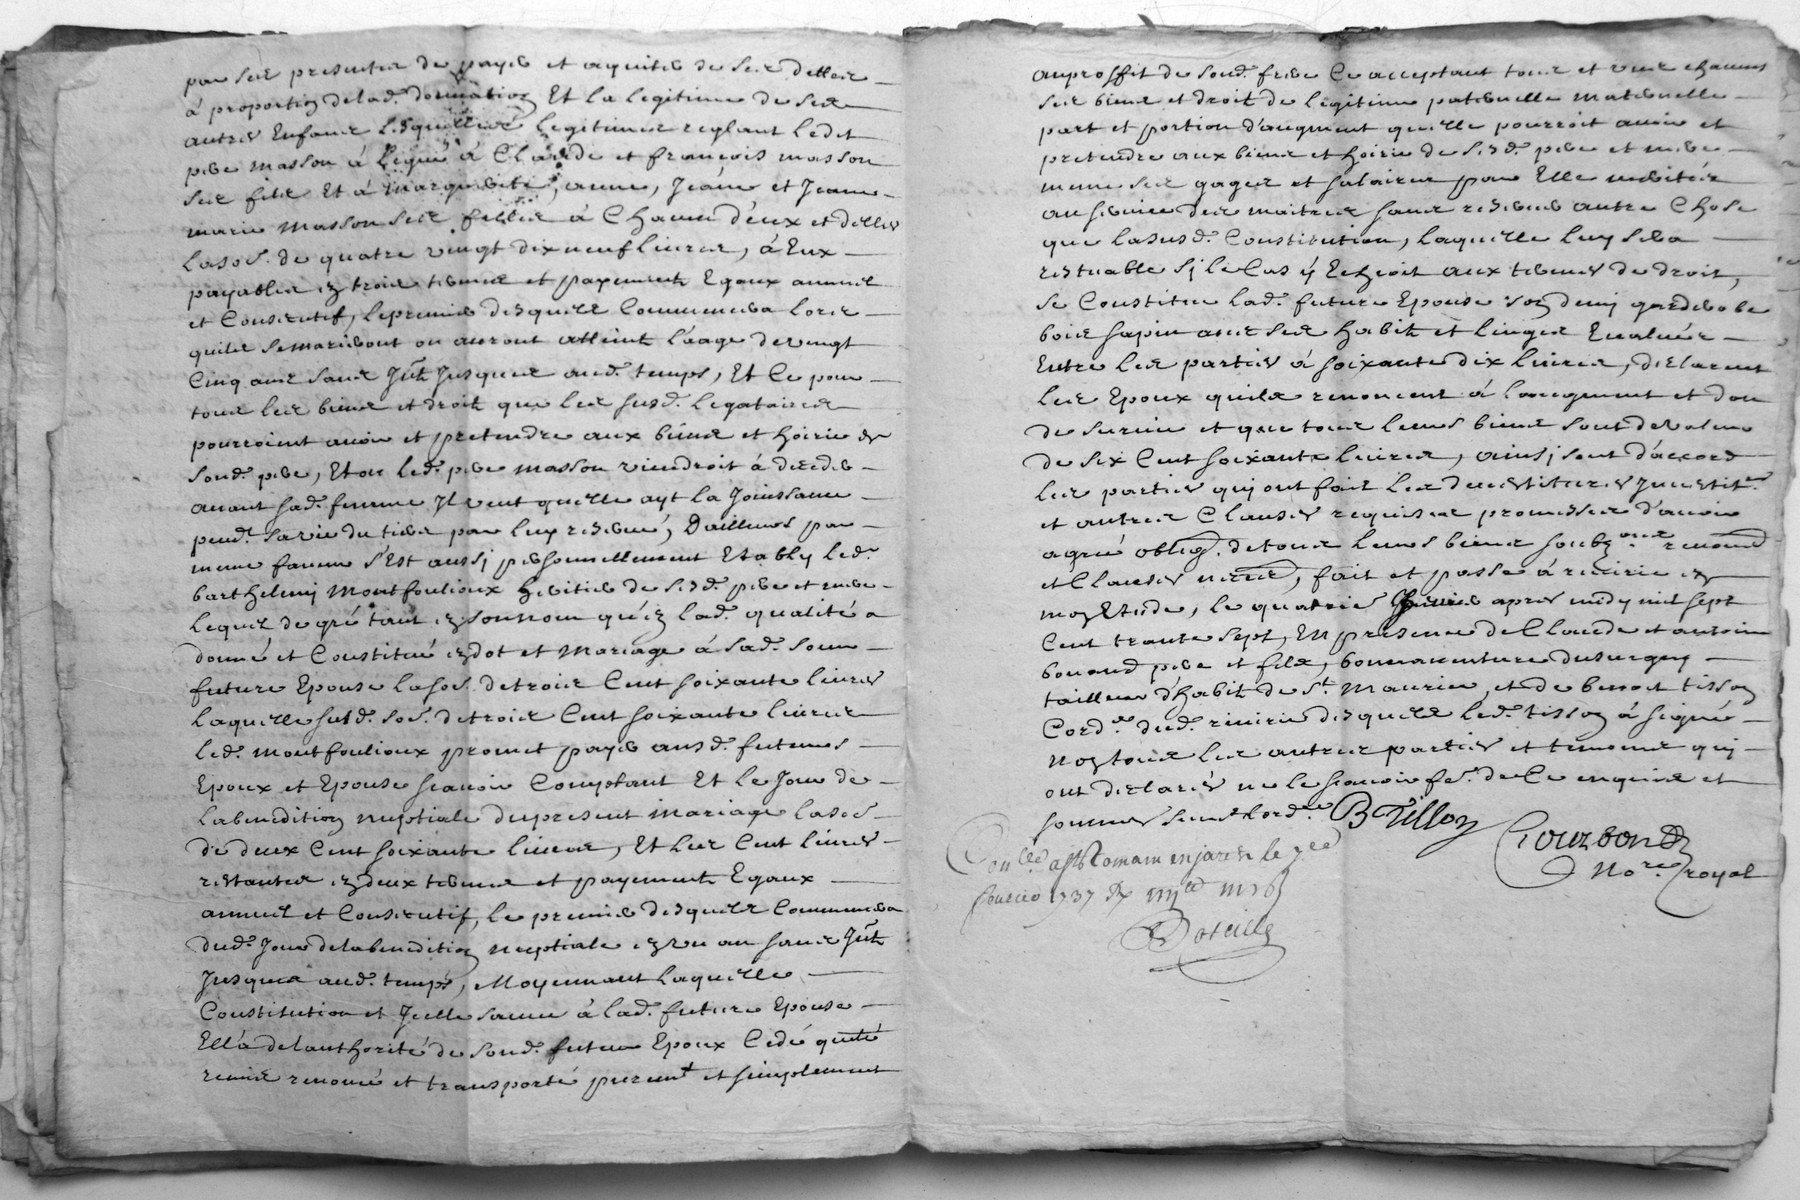 par ses presentes de payer et aquiter de ses dettes
à proportion de lad. donnation Et la legitime de ses
autres Enfans lesquelles legitimes reglant ledit
pere masson a legué à Claude et françois masson
ses fils Et à marguerite, anne, Jeanne et Jeanne
marie masson ses filles à Chacun d'eux et d'elles
la so.e de quatre vingt dix neuf livres, à Eux
payables en trois termes et payements Egaux annuel
et Consecutif, le premier desquels Commencera lors
quils se mariront ou auront atteint l'aage de vingt
Cinq ans sans Jt. Jusques aud. temps, Et Ce pour
tous les biens et droit que les susd. legataires
pourroient avoir et pretendre aux biens et hoirie de
sond. pere, Et ou led. pere masson viendroit à deceder
avant sad. femme Il veut quelle ayt la Jouissance
pend. sa vie du tiers par luy reservé, D'ailleurs par
meme faveur s'Est aussj personnellement Etably led.
barthelemy montfoulioux heritier de sesd. pere et mere
lequel de gré tant en son nom qu'en lad. qualité a
donné et Constitué en dot et mariage à sad. soeur
future Epouse la so.e de trois Cent soixante livres
laquelle susd. so.e de trois Cent soixante livres
led. montfoulioux promet payer ausd. futeurs
Epoux et Epouse scavoir Comptant Et le Jour de
la benediction nuptiale du present mariage la so.e
de deux Cent soixante livres, Et les Cent livres
restantes en deux termes et payements Egaux
annuel et Consecutif, le premier desquels Commencera
dud. Jour de la benediction nuptiale en un an sans Jt.
Jusques aud. temps, Moyennant laquelle
Constitution et Icelle sauve à lad. future Epouse
Ell'a de l'authorité de sond. futeur Epoux Cedé quitté
remis renoncé et transporté purem.t et simplement
au proffit de sond. frere Ce acceptant tous et uns chacuns
ses biens et droit de legitime paternelle maternelle
part et portion d'augment quelle pourroit avoir et
pretendre aux biens et hoirie de sesd. pere et mere
meme ses gages et salaires par Elle merités
au service des maitres sans reserver autre Chose
que la susd. Constitution, laquelle luy sera
restuable sj le Cas ÿ Echeoit aux termes de droit,
se Constitue lad. future Epouse son demy garderobe
bois sapin avec ses habits et linges Evalués
Entre les parties à soixante dix livres, declarent
les Epoux quils renoncent à l'augment et don
de survie et que tous leurs biens sont de valeur
de six Cent soixante livres, ainsj sont d'accord
les parties quj ont fait les devestitures Investit.
et autres Clauses requises promesses d'avoir
agreé oblig. de tous leurs biens soubz.ons renond.
et Clauses necess., fait et passé à riririe en
mon Etude, le quatrie apres midy mil sept
Cent trante sept, En presence de Claude et antoine
bonand pere et fils, bonnaventure dusurgey
tailleur d'habit de S.t Maurice, et de benoit tisson
Cord.er dud. riririe desquels led. tisson à signé
non tous les autres parties et temoins quj
ont declarés ne le scavoir fe. de Ce enquis et
sommés suiv.t l'ord.ce B Tisson
Courbon
No.re royal
Con.lé a S.t Romain en jarest le 7.e
fevrier 1737
Boteille